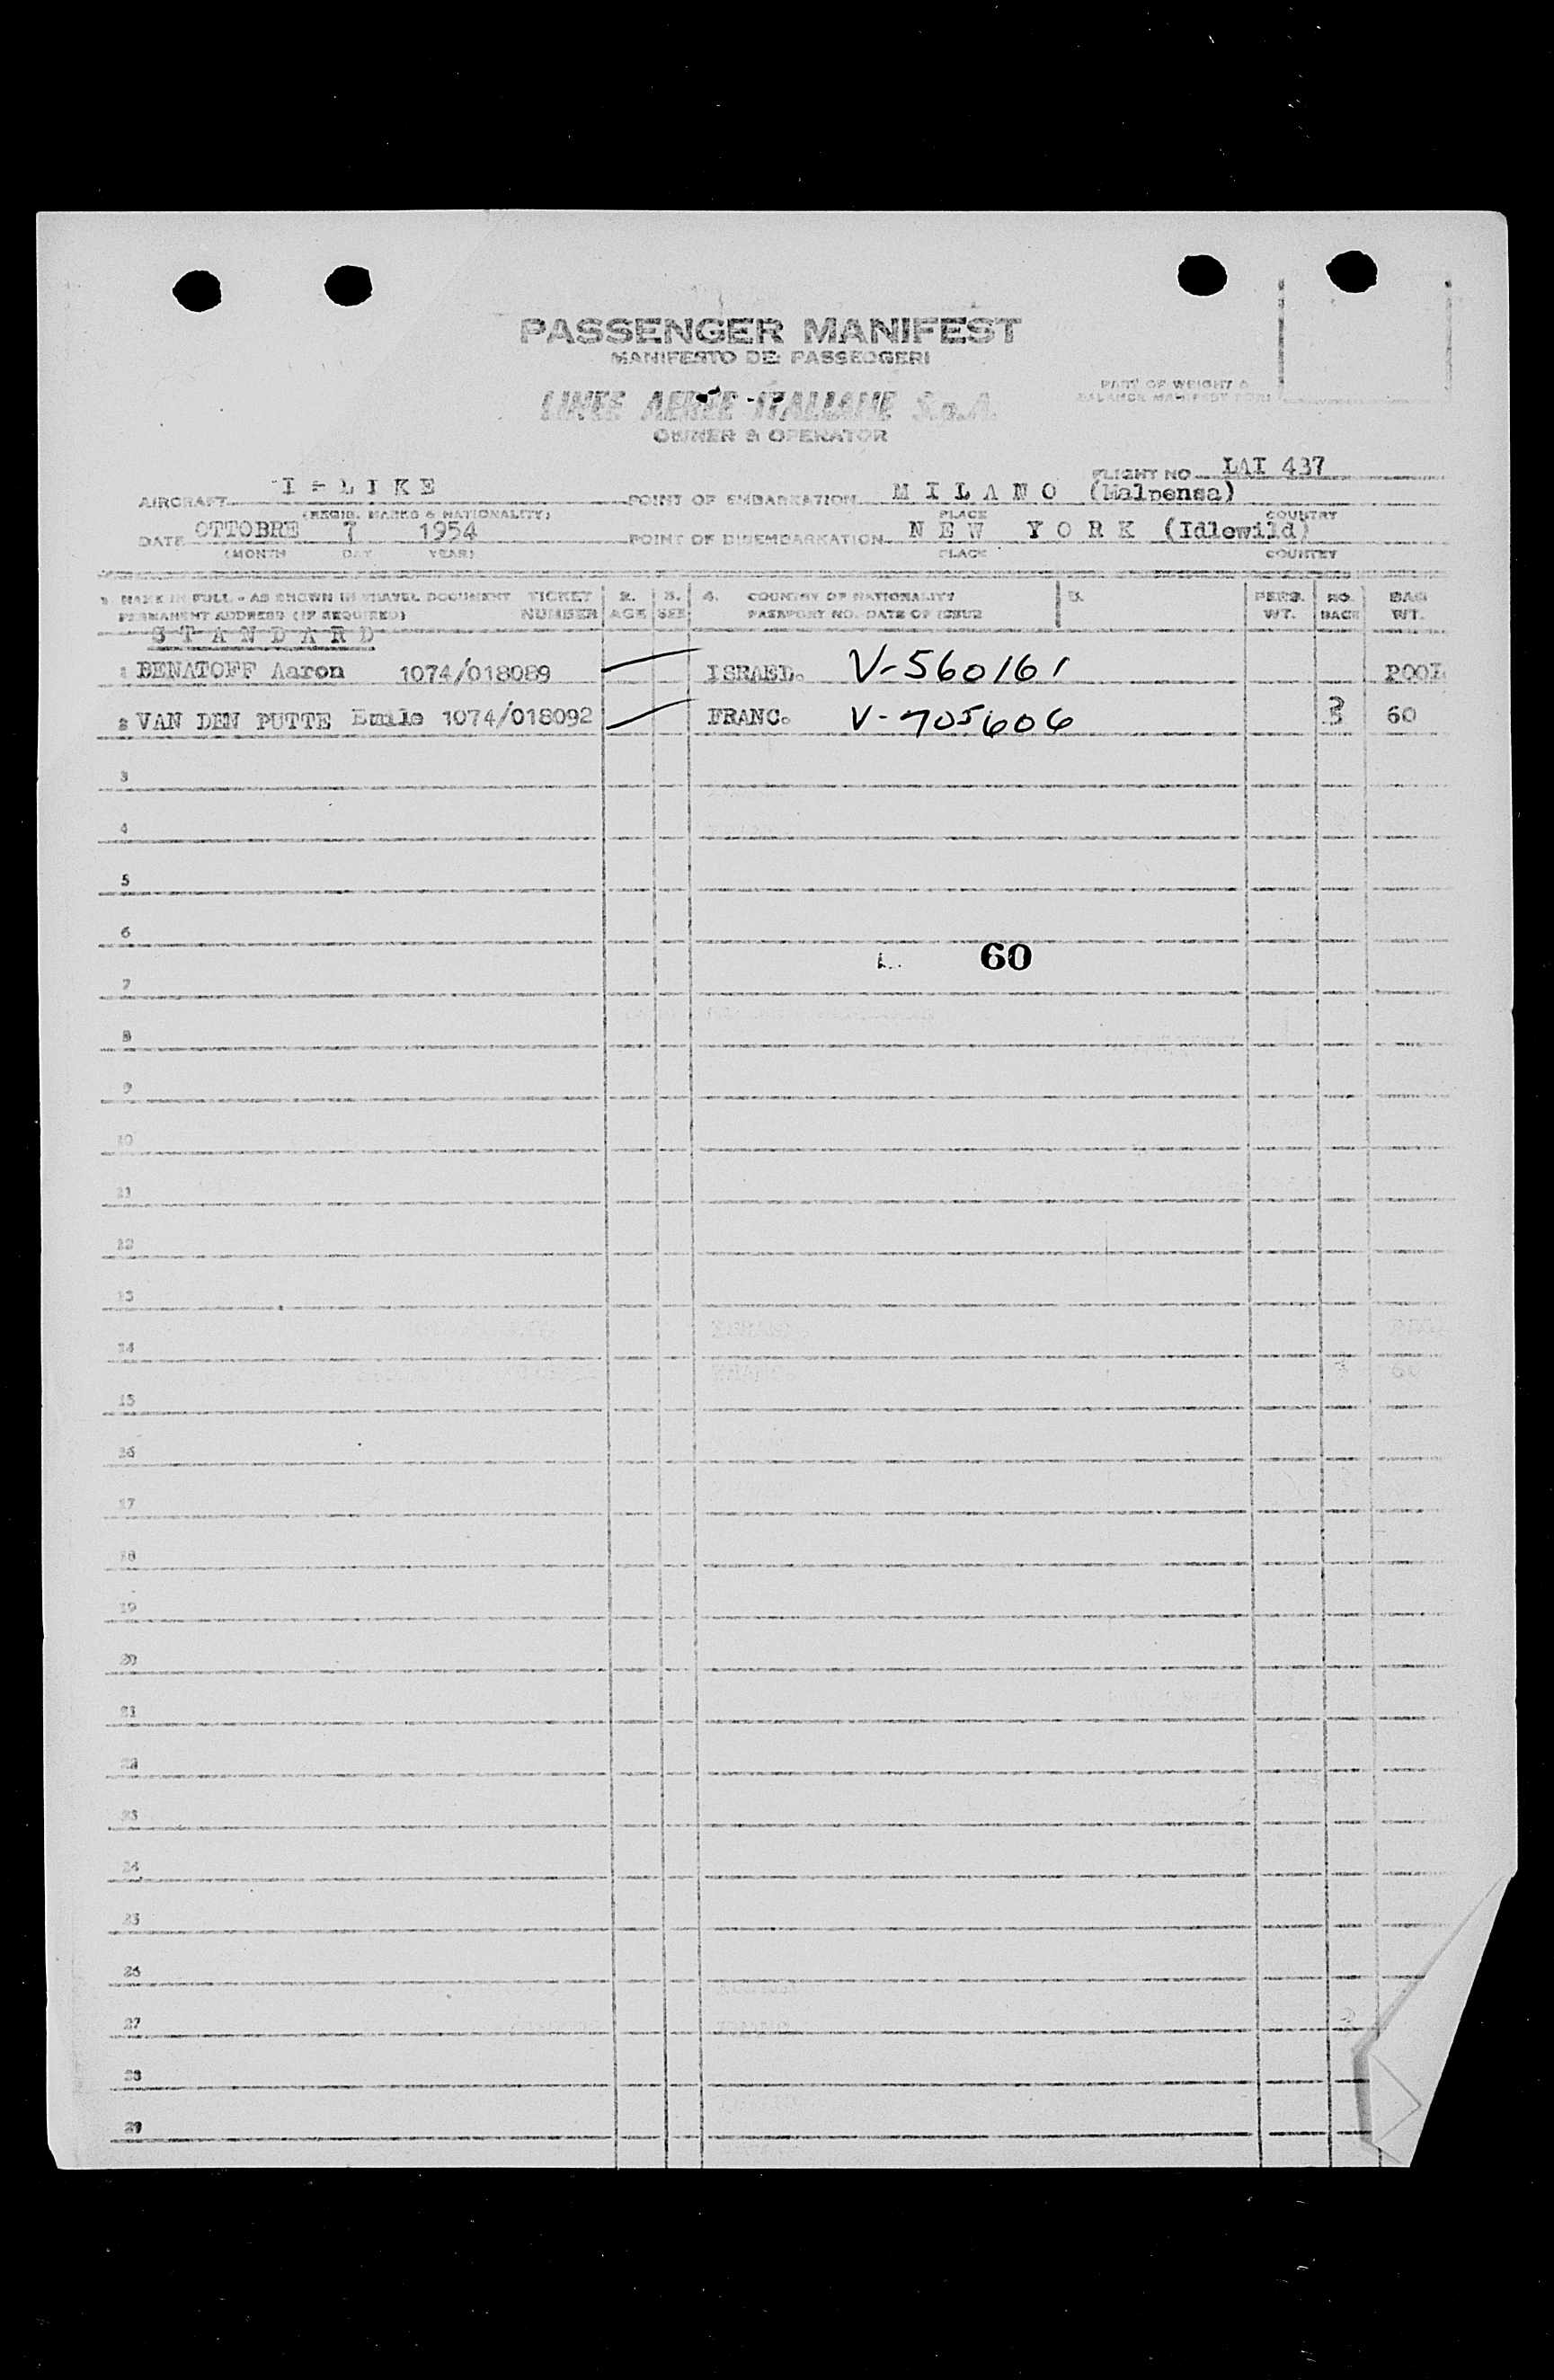 PASSENGER MANIFEST
MANIFESTO DEI PASSEGGERI
LINEE AEREE ITALIANE S.p.A.
OWNER & OPERATOR
PART OF WEIGHT &
BALANCE MANIFEST FORM
FLIGHT NO LAI 437
AIRCRAFT I - L I K E POINT OF EMBARKATION M I L A N O (Malpensa)
(REGIS. MARKS & NATIONALITY) PLACE COUNTRY
DATE OTTOBRE 7 1954 POINT OF DISEMBARKATION N E W Y O R K (Idlewild)
(MONTH DAY YEAR) PLACE COUNTRY
1 NAME IN FULL - AS SHOWN IN TRAVEL DOCUMENT TICKET 2. 3. 4. COUNTRY OF NATIONALITY 5. PERS. NO. BAG
PERMANENT ADDRESS (IF REQUIRED) NUMBER AGE SEX PASSPORT NO. DATE OF ISSUE WT. BAGS WT.
S T A N D A R D
1 BENATOFF Aaron 1074/018089 ISRAEL. V-560161 POOL
2 VAN DEN PUTTE Emile 1074/018092 FRANC. V-705606 60
3
4
5
6
60
7
8
9
10
11
12
13
14
15
16
17
18
19
20
21
22
23
24
25
26
27
28
29